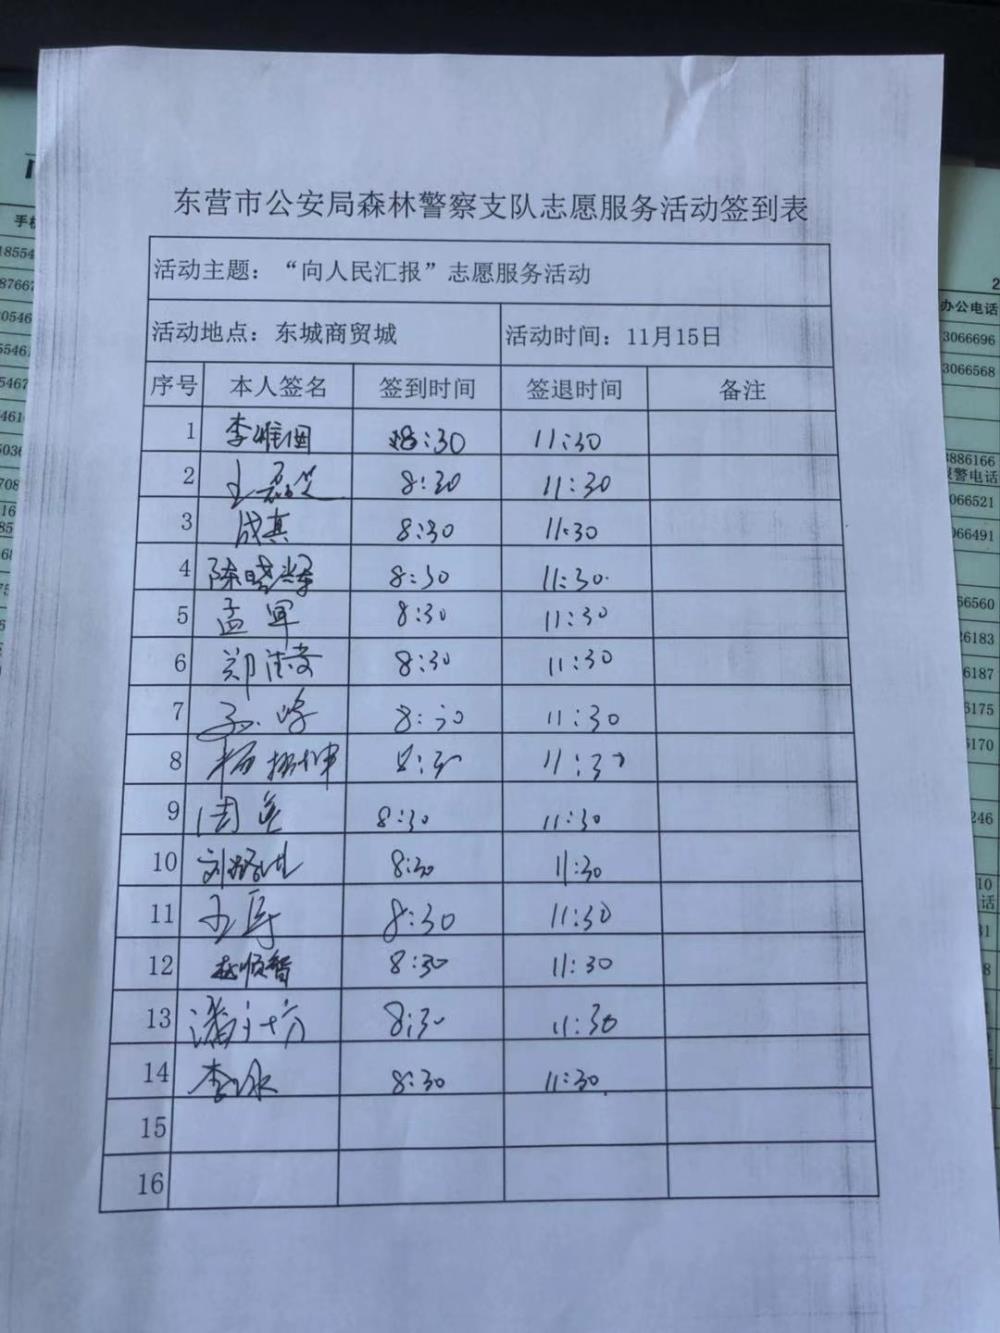 东营市公安局森林警察支队志愿服务活动签到表
活动主题：“向人民汇报”志愿服务活动
活动地点：东城商贸城 活动时间：11月15日
序号 本人签名 签到时间 签退时间 备注
1 8:30 11:30
2 8:30 11:30
3 成真 8:30 11:30
4 陈晓 8:30 11:30
5 孟军 8:30 11:30
6 郑 8:30 11:30
7 8:30 11:30
8 杨振坤 8:30 11:30
9 周 8:30 11:30
10 刘 8:30 11:30
11 王 8:30 11:30
12 赵顺智 8:30 11:30
13 潘 8:30 11:30
14 李冰 8:30 11:30
15
16
手机
办公电话
3066696
3066568
3886166
警电话
066521
066491
66560
6183
6187
6175
6170
246